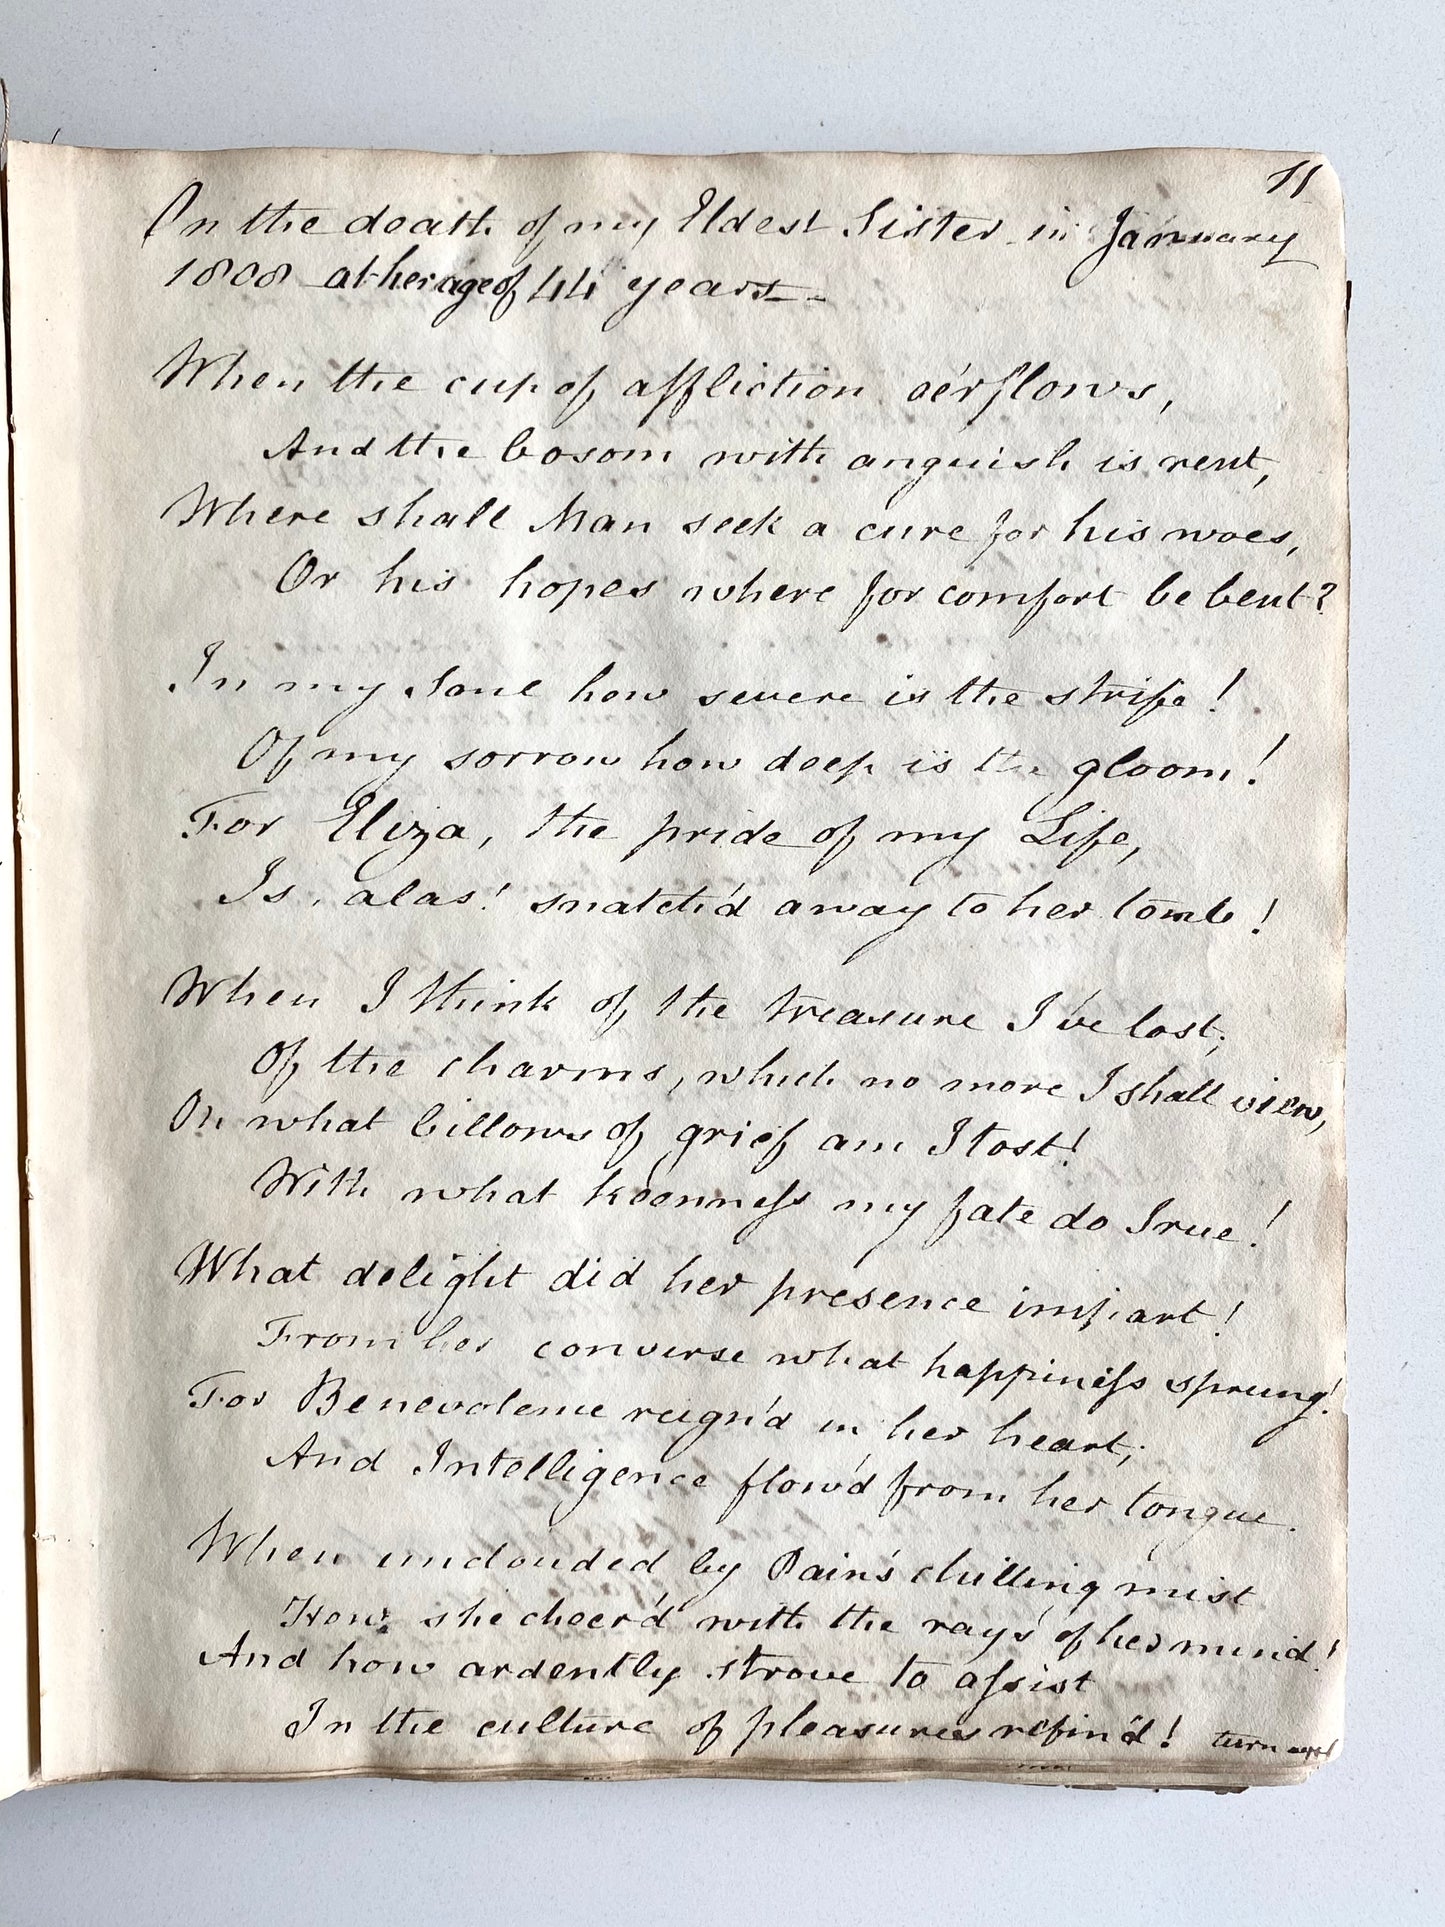 11
On the death of my Eldest Sister in January
1808 at her age of 44 years
When the cup of affliction oe'rflows,
And the bosom with anguish is rent,
Where shall Man seek a cure for his woes,
Or his hopes where for comfort be bent?
In my Soul how severe is the strife!
Of my sorrow how deep is the gloom!
For Eliza, the pride of my Life,
Is, alas! snatch'd away to her tomb!
When I think of the treasure I've lost;
Of the charms, which no more I shall view,
On what billows of grief am I tost!
With what keenneſs my fate do I rue!
What delight did her presence impart!
From her converse what happineſs sprung!
For Benevolence reign'd in her heart;
And Intelligence flow'd from her tongue.
When unclouded by Pain's chilling mist
How she cheer'd with the rays of her mind!
And how ardently strove to aſsist
In the culture of pleasures refin'd! turn